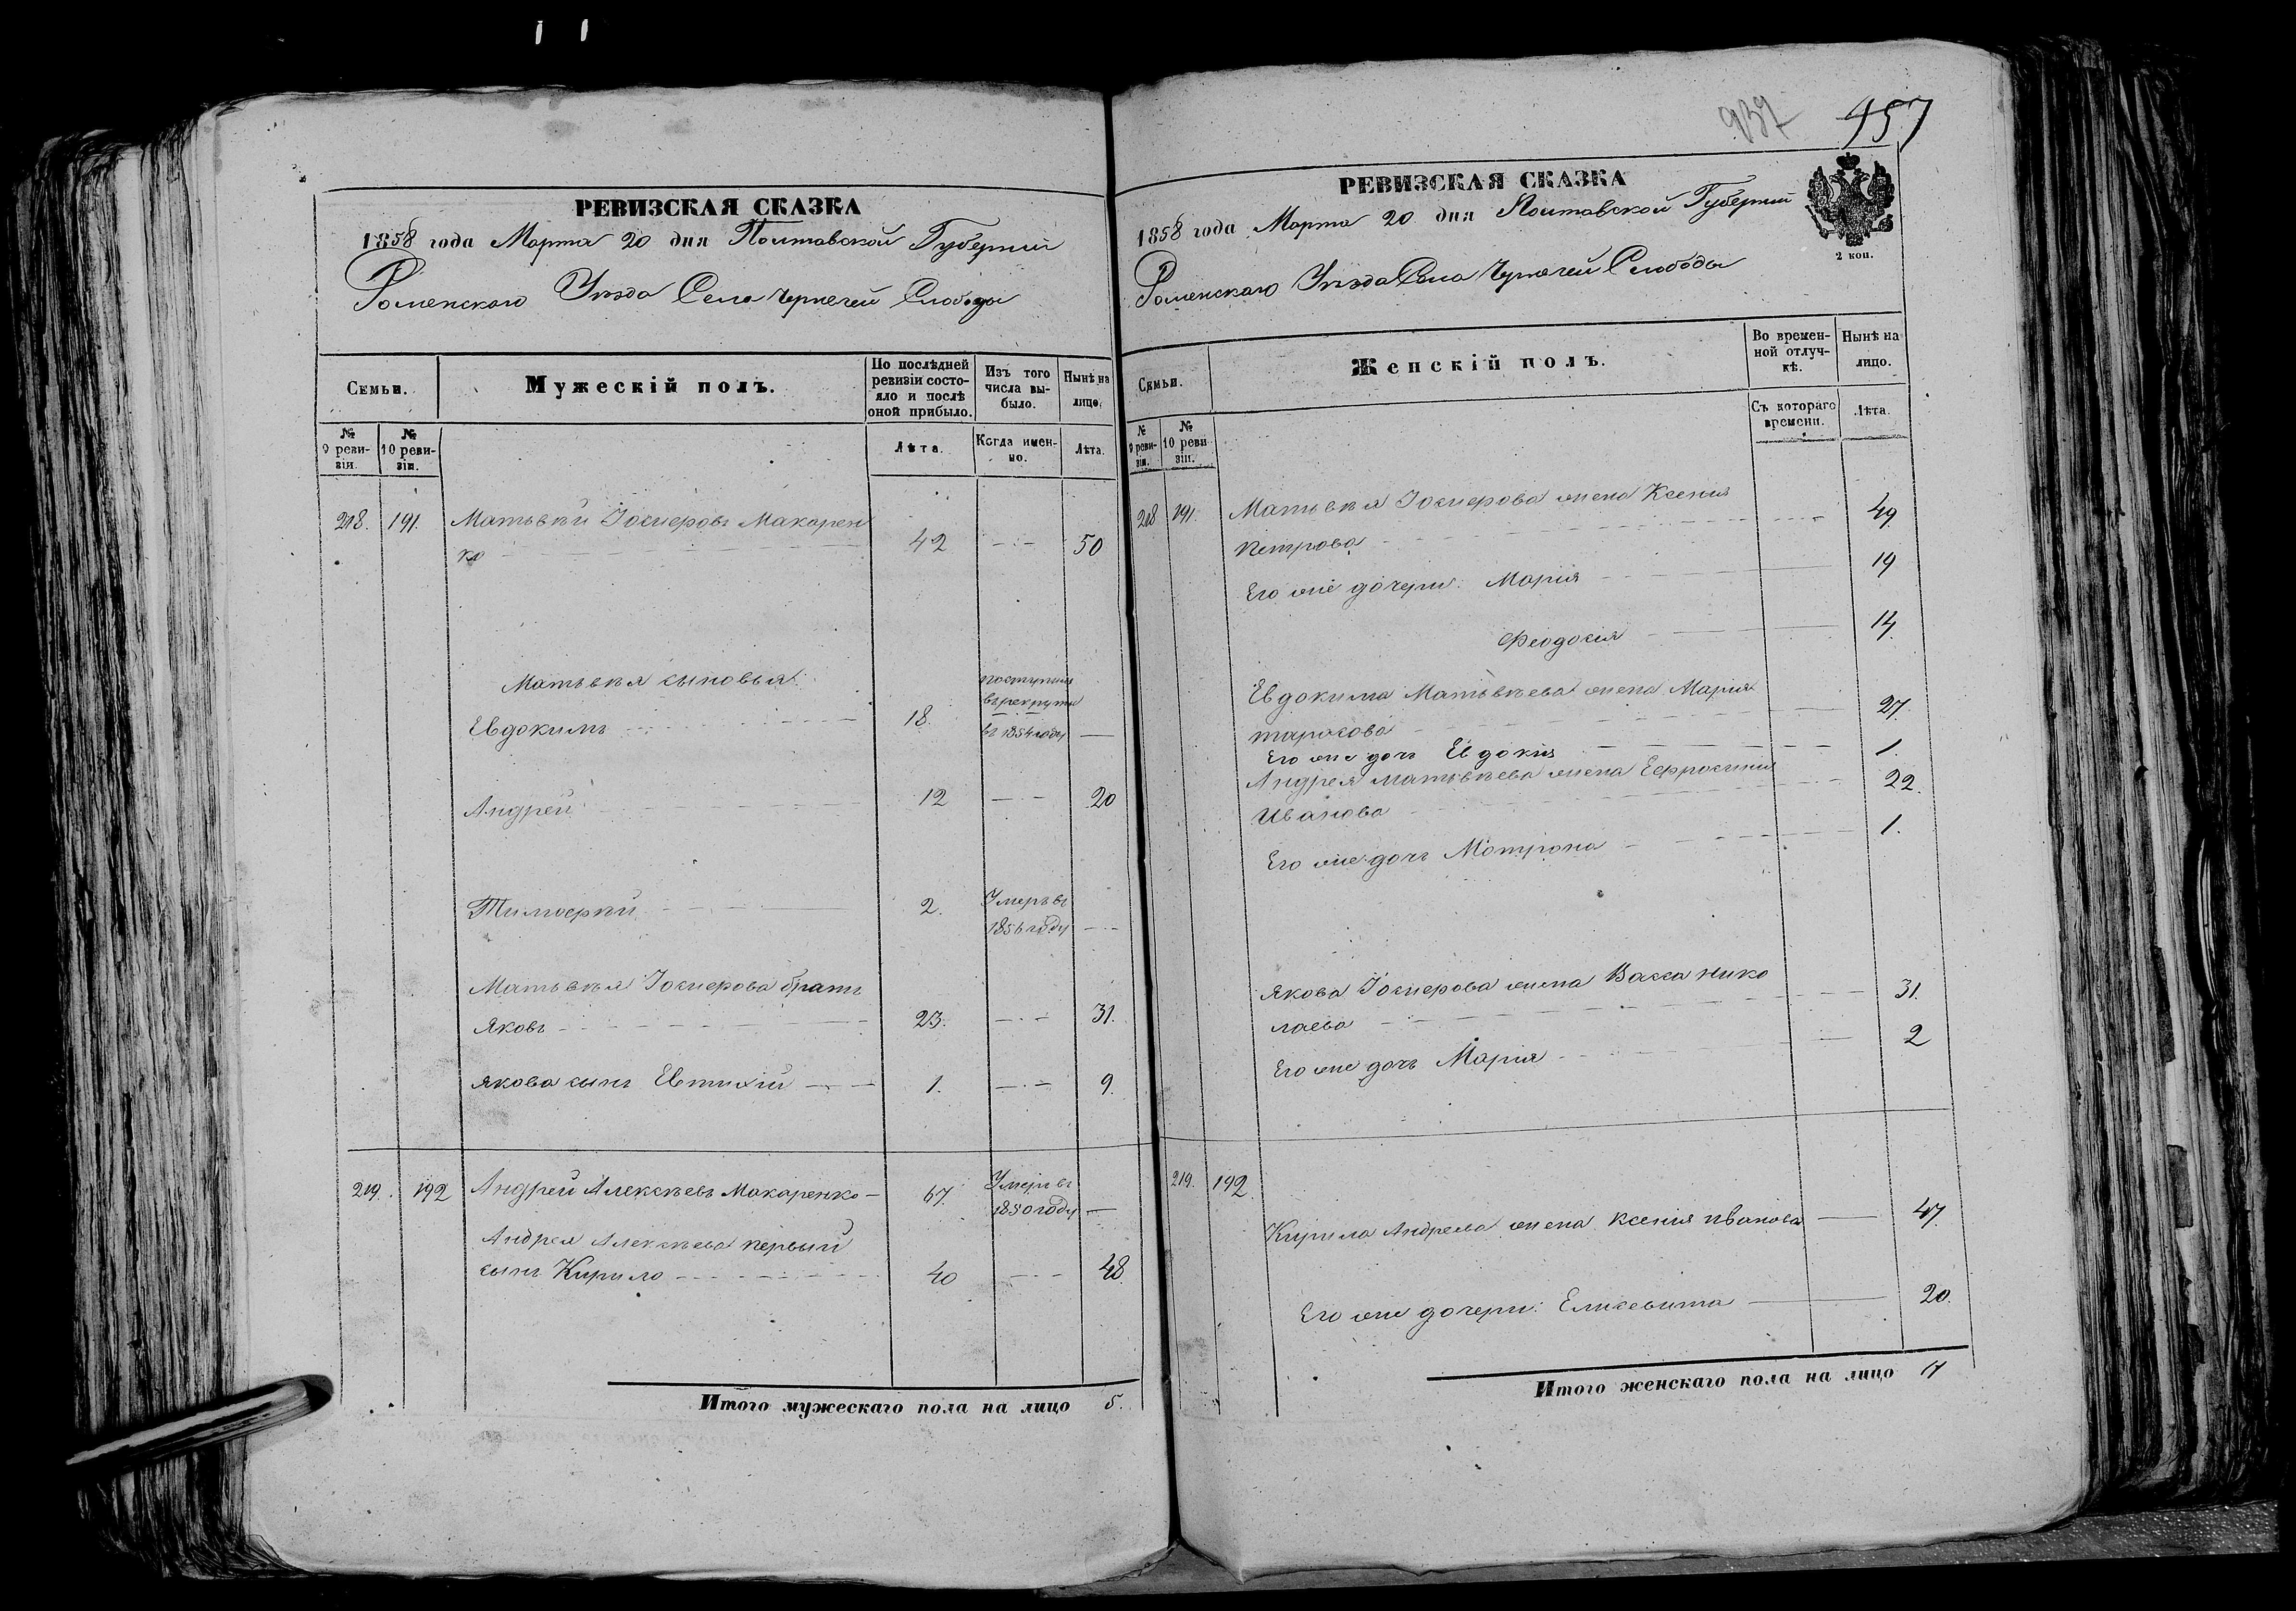 РЕВИЗСКАЯ СКАЗКА
1858 года Марта 20 дня Полтавской Губернии
Роменскаго Уѣзда Села Чернечей Слободы
Семьи.
Мужескій полъ.
По послѣдней ревизіи состояло и послѣ оной прибыло.
Изъ того числа выбыло.
Нынѣ на лицо.
№ 9 ревизіи.
№ 10 ревизіи.
Лѣта.
Когда именно.
Лѣта.
218. 191. Матвѣй Іосифовъ Макарен
ко 42 50
Матвѣя сыновья:
Евдокимъ 18. поступилъ
въ рекруты
въ 1854 году
Андрей 12 20
Тимофей 2. Умеръ въ
1856 году
Матвѣя Іосифова братъ
Яковъ 23. 31.
Якова сынъ Евтихій 1. 9.
219. 192 Андрей Алексѣевъ Макаренко 67. Умеръ въ
1850 году
Андрея Алексѣева первый
сынъ Кирило 40 48
Итого мужескаго пола на лицо 5.
937 957
РЕВИЗСКАЯ СКАЗКА
2 коп.
1858 года Марта 20 дня Полтавской Губернии
Роменскаго Уѣзда Села Чернечей Слободы
Семьи.
Женскій полъ.
Во временной отлучкѣ.
Нынѣ на лицо.
№ 9 ревизіи.
№ 10 ревизіи.
Съ котораго времени.
Лѣта.
218 191. Матвѣя Іосифова жена Ксенія
Петрова 49
Его же дочери: Марія 19
Феодосія 14.
Евдокима Матвѣева жена Марія
Тарасова 27.
Его же дочь Евдокія 1
Андрея Матвѣева жена Ефросинія
Иванова 22.
Его же дочь Мотрона 1.
Якова Іосифова жена Васса Нико
лаева 31.
Его же дочь Марія 2
219. 192.
Кирила Андреева жена Ксенія Иванова 47.
Его же дочери: Елисавита 20.
Итого женскаго пола на лицо